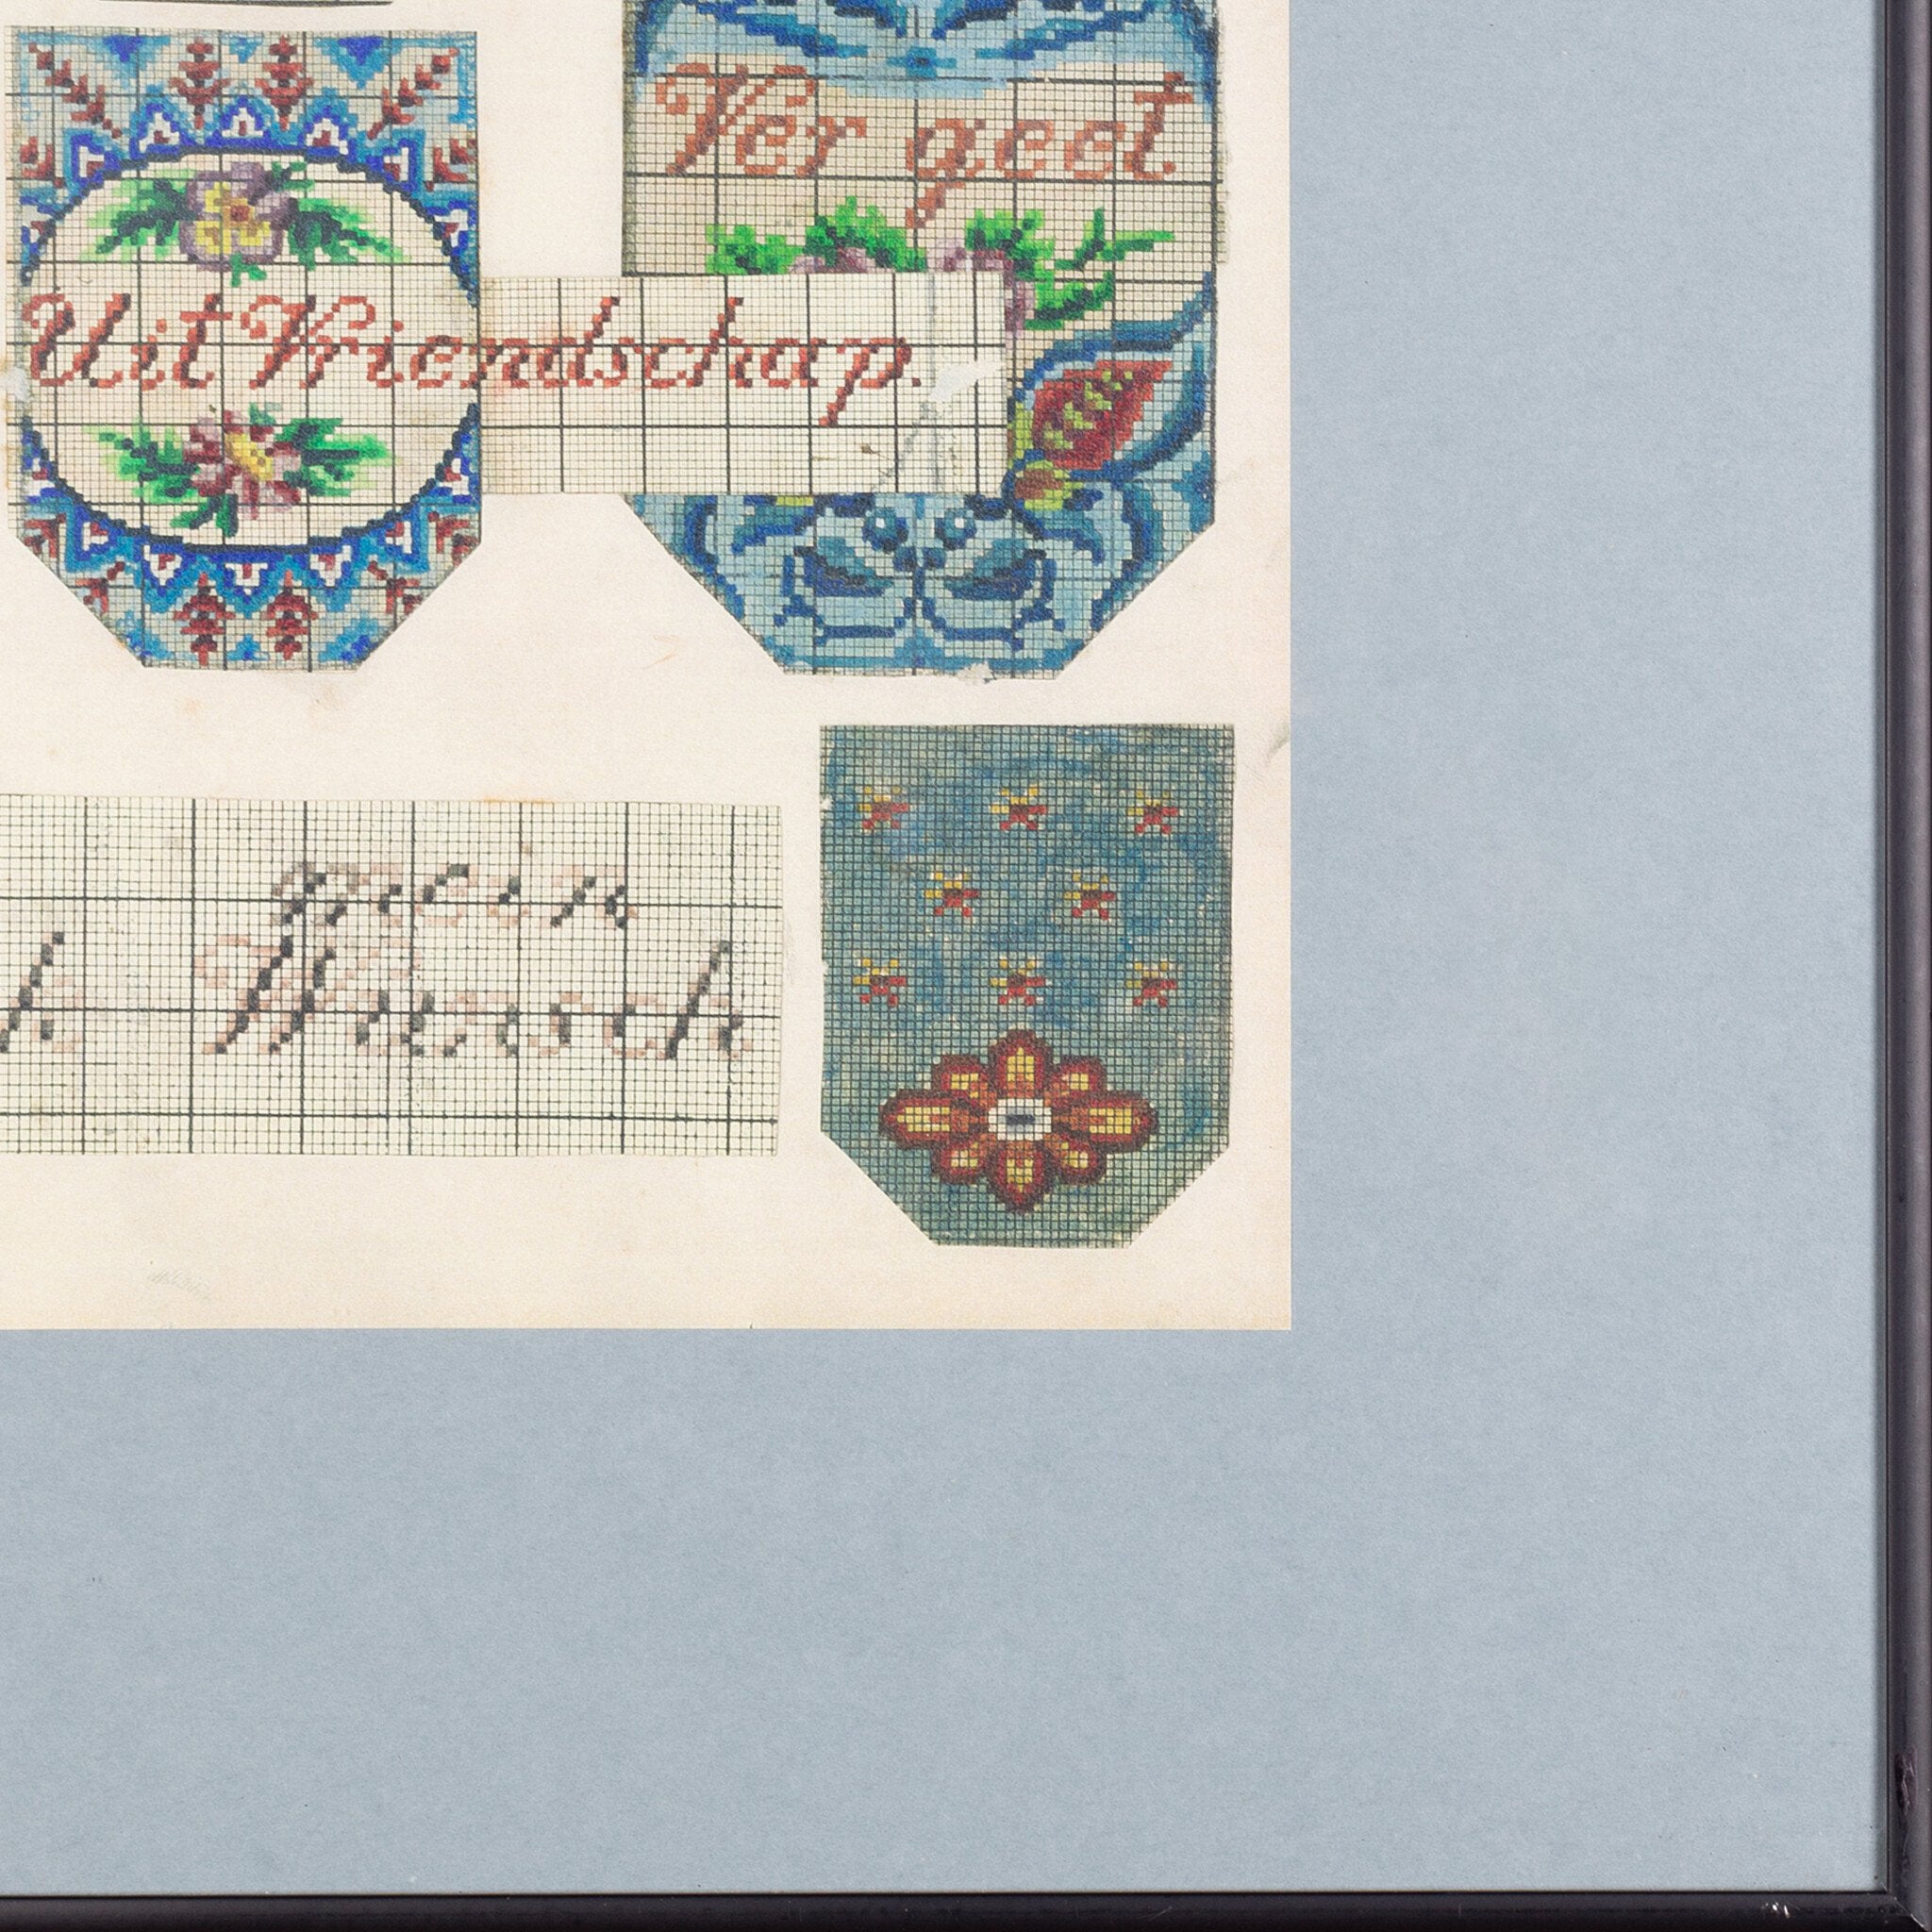 Ver geet
Uit Vriendschap.
mein
Wnsch